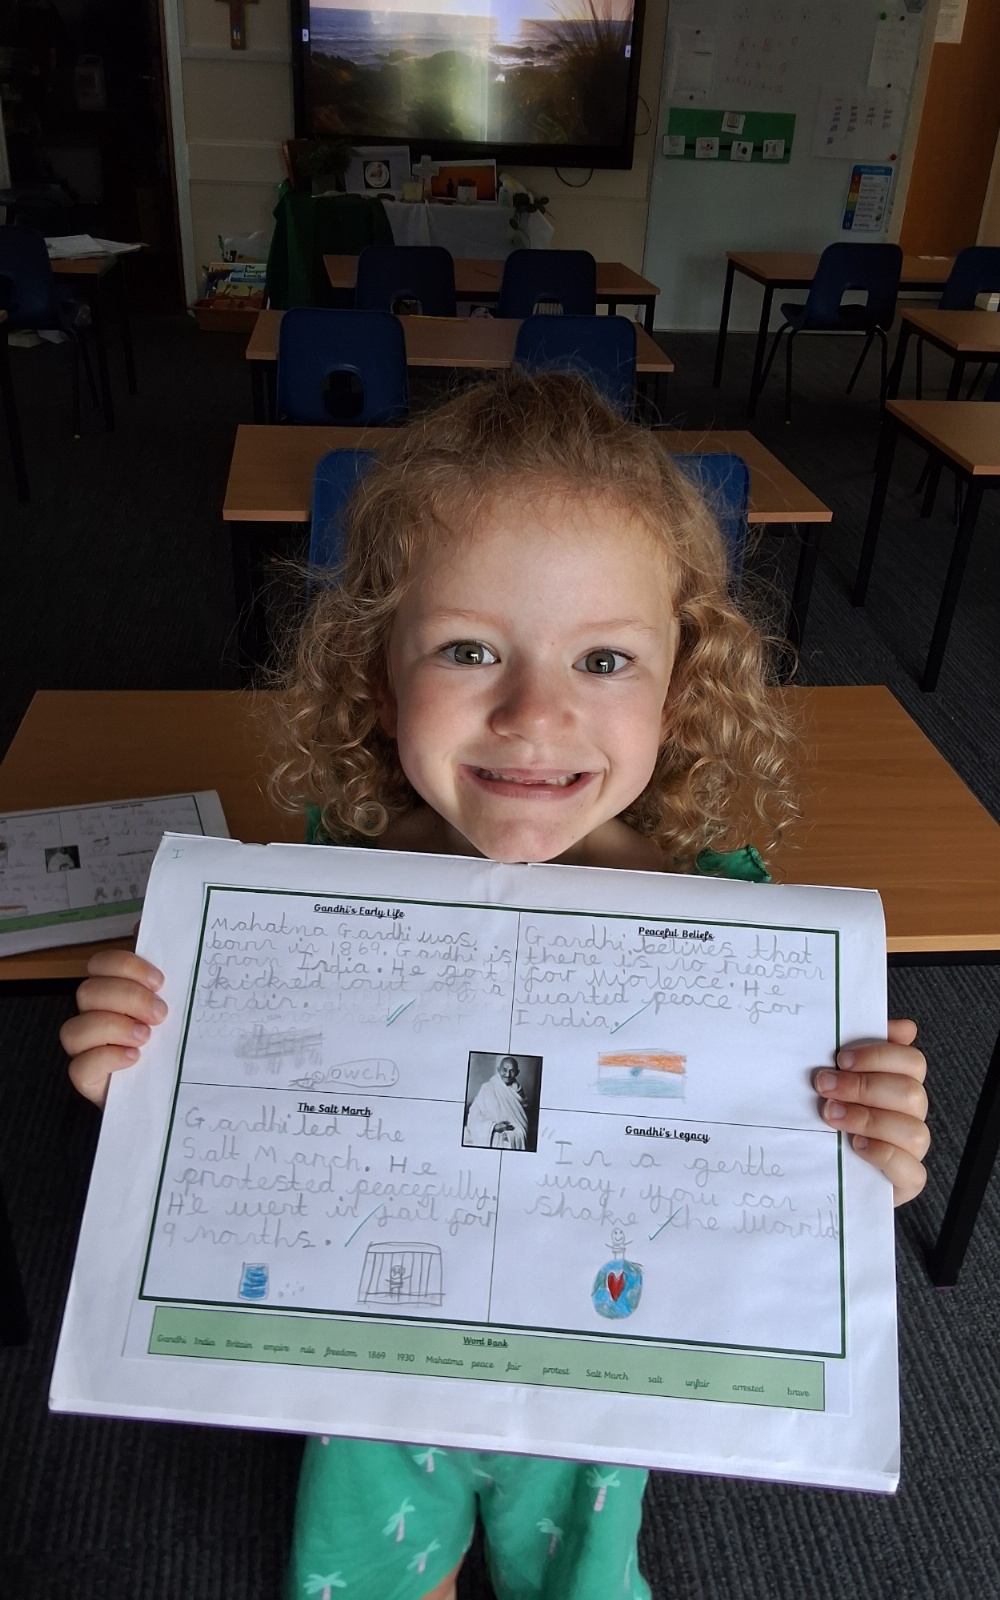 I
Gandhi's Early Life
Mahatma Gandhi was
born in 1869. Gandhi is
from India. He got
kicked out of a
train.
owch!
Peaceful Beliefs
Gandhi belives that
there is no reason
for viorlence. He
wanted peace for
India.
The Salt March
Gandhi led the
Salt March. He
protested peacefully.
He went in jail for
9 months.
Gandhi's Legacy
"In a gentle
way, you can
shake the world"
Word Bank
Gandhi India Britain empire rule freedom 1869 1930 Mahatma peace fair protest Salt March salt unfair arrested brave